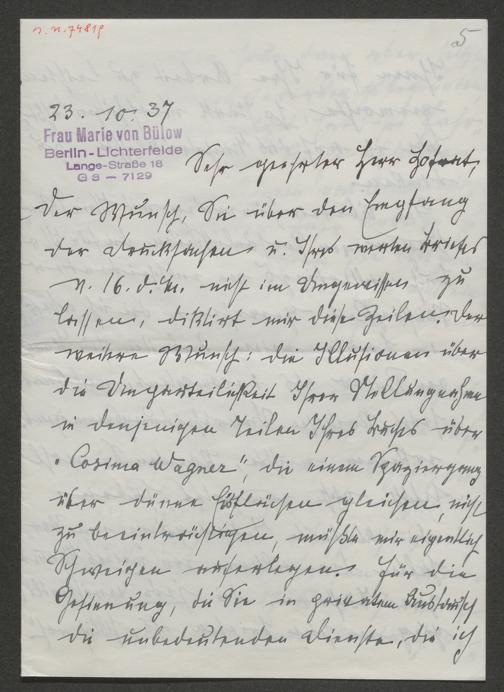 N.N. 74819
5
23. 10. 37
Frau Marie von Bülow
Berlin-Lichterfelde
Lange-Straße 18
G 3 — 7129
Sehr geehrter Herr Hofrat,
Der Wunsch, Sie über den Empfang
der Drucksachen u. Ihres werten Briefes
v. 16. d. M. nicht im Ungewissen zu
lassen, diktirt mir diese Zeilen. Der
weitere Wunsch: die Illusionen über
die Unparteilichkeit Ihrer Stellungnahme
in denjenigen Teilen Ihres Buches über
"Cosima Wagner", die einem Spaziergang
über dünne Eisflächen gleichen, nicht
zu beeinträchtigen, müßte mir eigentlich
Schweigen auferlegen. Für die
Gesinnung, die Sie in privatem Austausch
die unbedeutenden Dienste, die ich